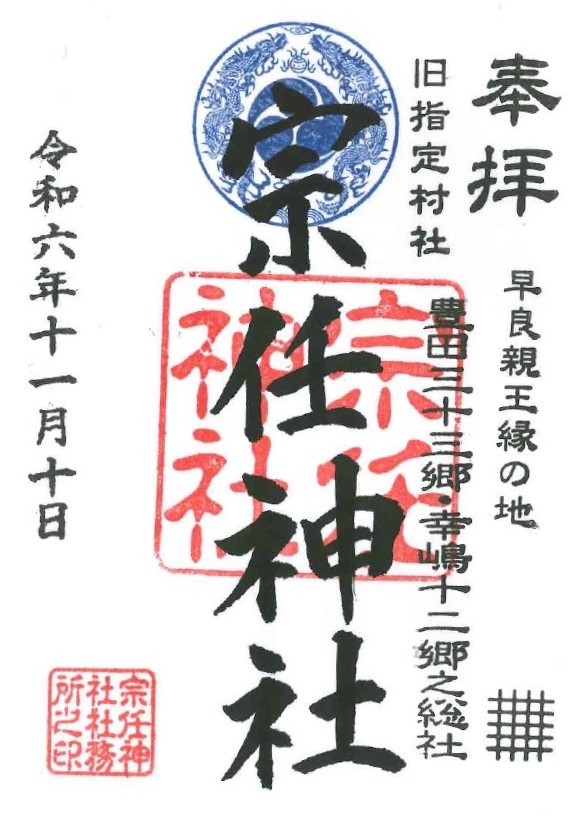 奉拝
早良親王縁の地
旧指定村社
豊田三十三郷・幸嶋十二郷之総社
宗任神社
宗任
神社
令和六年十一月十日
宗任神
社社務
所之印